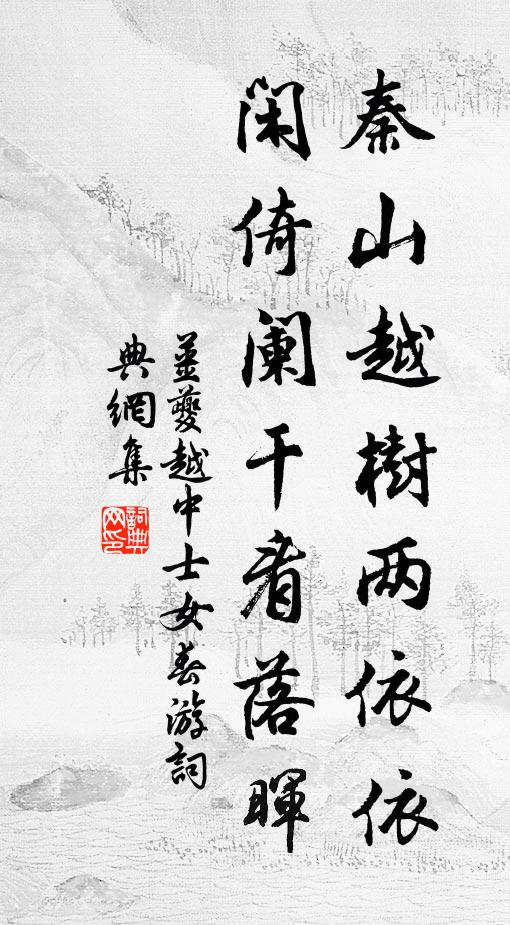 秦山越樹两依依
闲倚阑干看落暉
姜夔越中士女春游詞
典網集
詞典網印